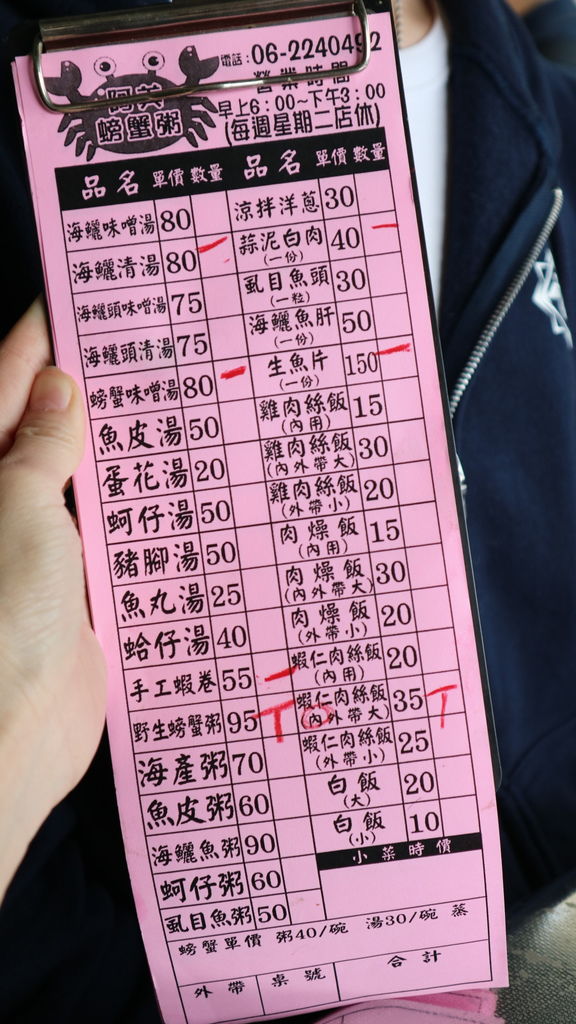 電話:06-2240492
阿美
螃蟹粥
營業時間
早上6:00~下午3:00
(每週星期二店休)
品名 單價 數量 品名 單價 數量
海鱺味噌湯 80 涼拌洋蔥 30
海鱺清湯 80 一 蒜泥白肉(一份) 40 一
海鱺頭味噌湯 75 虱目魚頭(一粒) 30
海鱺頭清湯 75 海鱺魚肝(一份) 50
螃蟹味噌湯 80 一 生魚片(一份) 150 一
魚皮湯 50 雞肉絲飯(內用) 15
蛋花湯 20 雞肉絲飯(內外帶大) 30
蚵仔湯 50 雞肉絲飯(外帶小) 20
豬腳湯 50 肉燥飯(內用) 15
魚丸湯 25 肉燥飯(內外帶大) 30
蛤仔湯 40 肉燥飯(外帶小) 20
手工蝦卷 55 一 蝦仁肉絲飯(內用) 20
野生螃蟹粥 95 T 蝦仁肉絲飯(內外帶大) 35 T
海產粥 70 蝦仁肉絲飯(外帶小) 25
魚皮粥 60 白飯(大) 20
海鱺魚粥 90 白飯(小) 10
蚵仔粥 60 小菜時價
虱目魚粥 50
螃蟹單價 粥40/碗 湯30/碗 蒸
外帶 桌號 合計